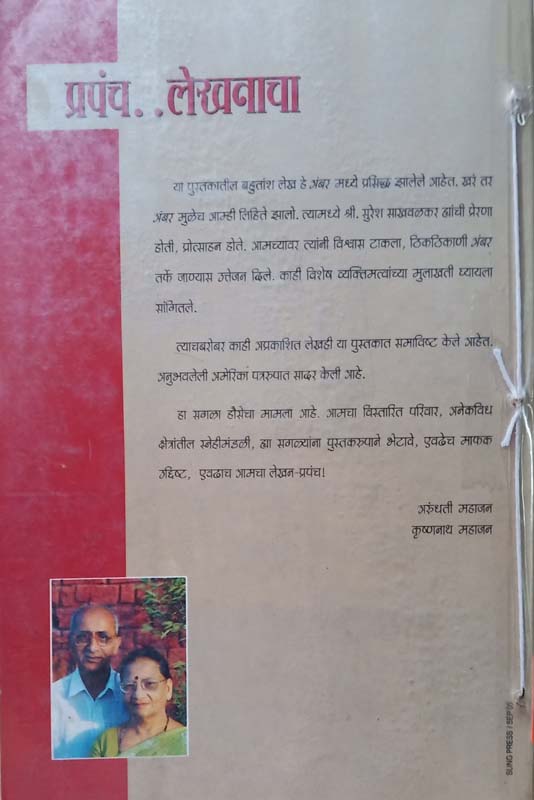 प्रपंच..लेखनाचा
या पुस्तकातील बहुतांश लेख हे अंबर मध्ये प्रसिद्ध झालेले आहेत. खरं तर
अंबर मुळेच आम्ही लिहिते झालो. त्यामध्ये श्री. सुरेश साखवळकर ह्यांची प्रेरणा
होती, प्रोत्साहन होते. आमच्यावर त्यांनी विश्वास टाकला, ठिकठिकाणी अंबर
तर्फे जाण्यास उत्तेजन दिले. काही विशेष व्यक्तिमत्वांच्या मुलाखती घ्यायला
सांगितले.
त्याचबरोबर काही अप्रकाशित लेखही या पुस्तकात समाविष्ट केले आहेत.
अनुभवलेली अमेरिका पत्ररुपात सादर केली आहे.
हा सगळा हौसेचा मामला आहे. आमचा विस्तारित परिवार, अनेकविध
क्षेत्रांतील स्नेहीमंडळी, ह्या सगळ्यांना पुस्तकरुपाने भेटावे, एवढेच माफक
उद्दिष्ट, एवढाच आमचा लेखन-प्रपंच!
अरुंधती महाजन
कृष्णनाथ महाजन
SUNG PRESS / SEP'05